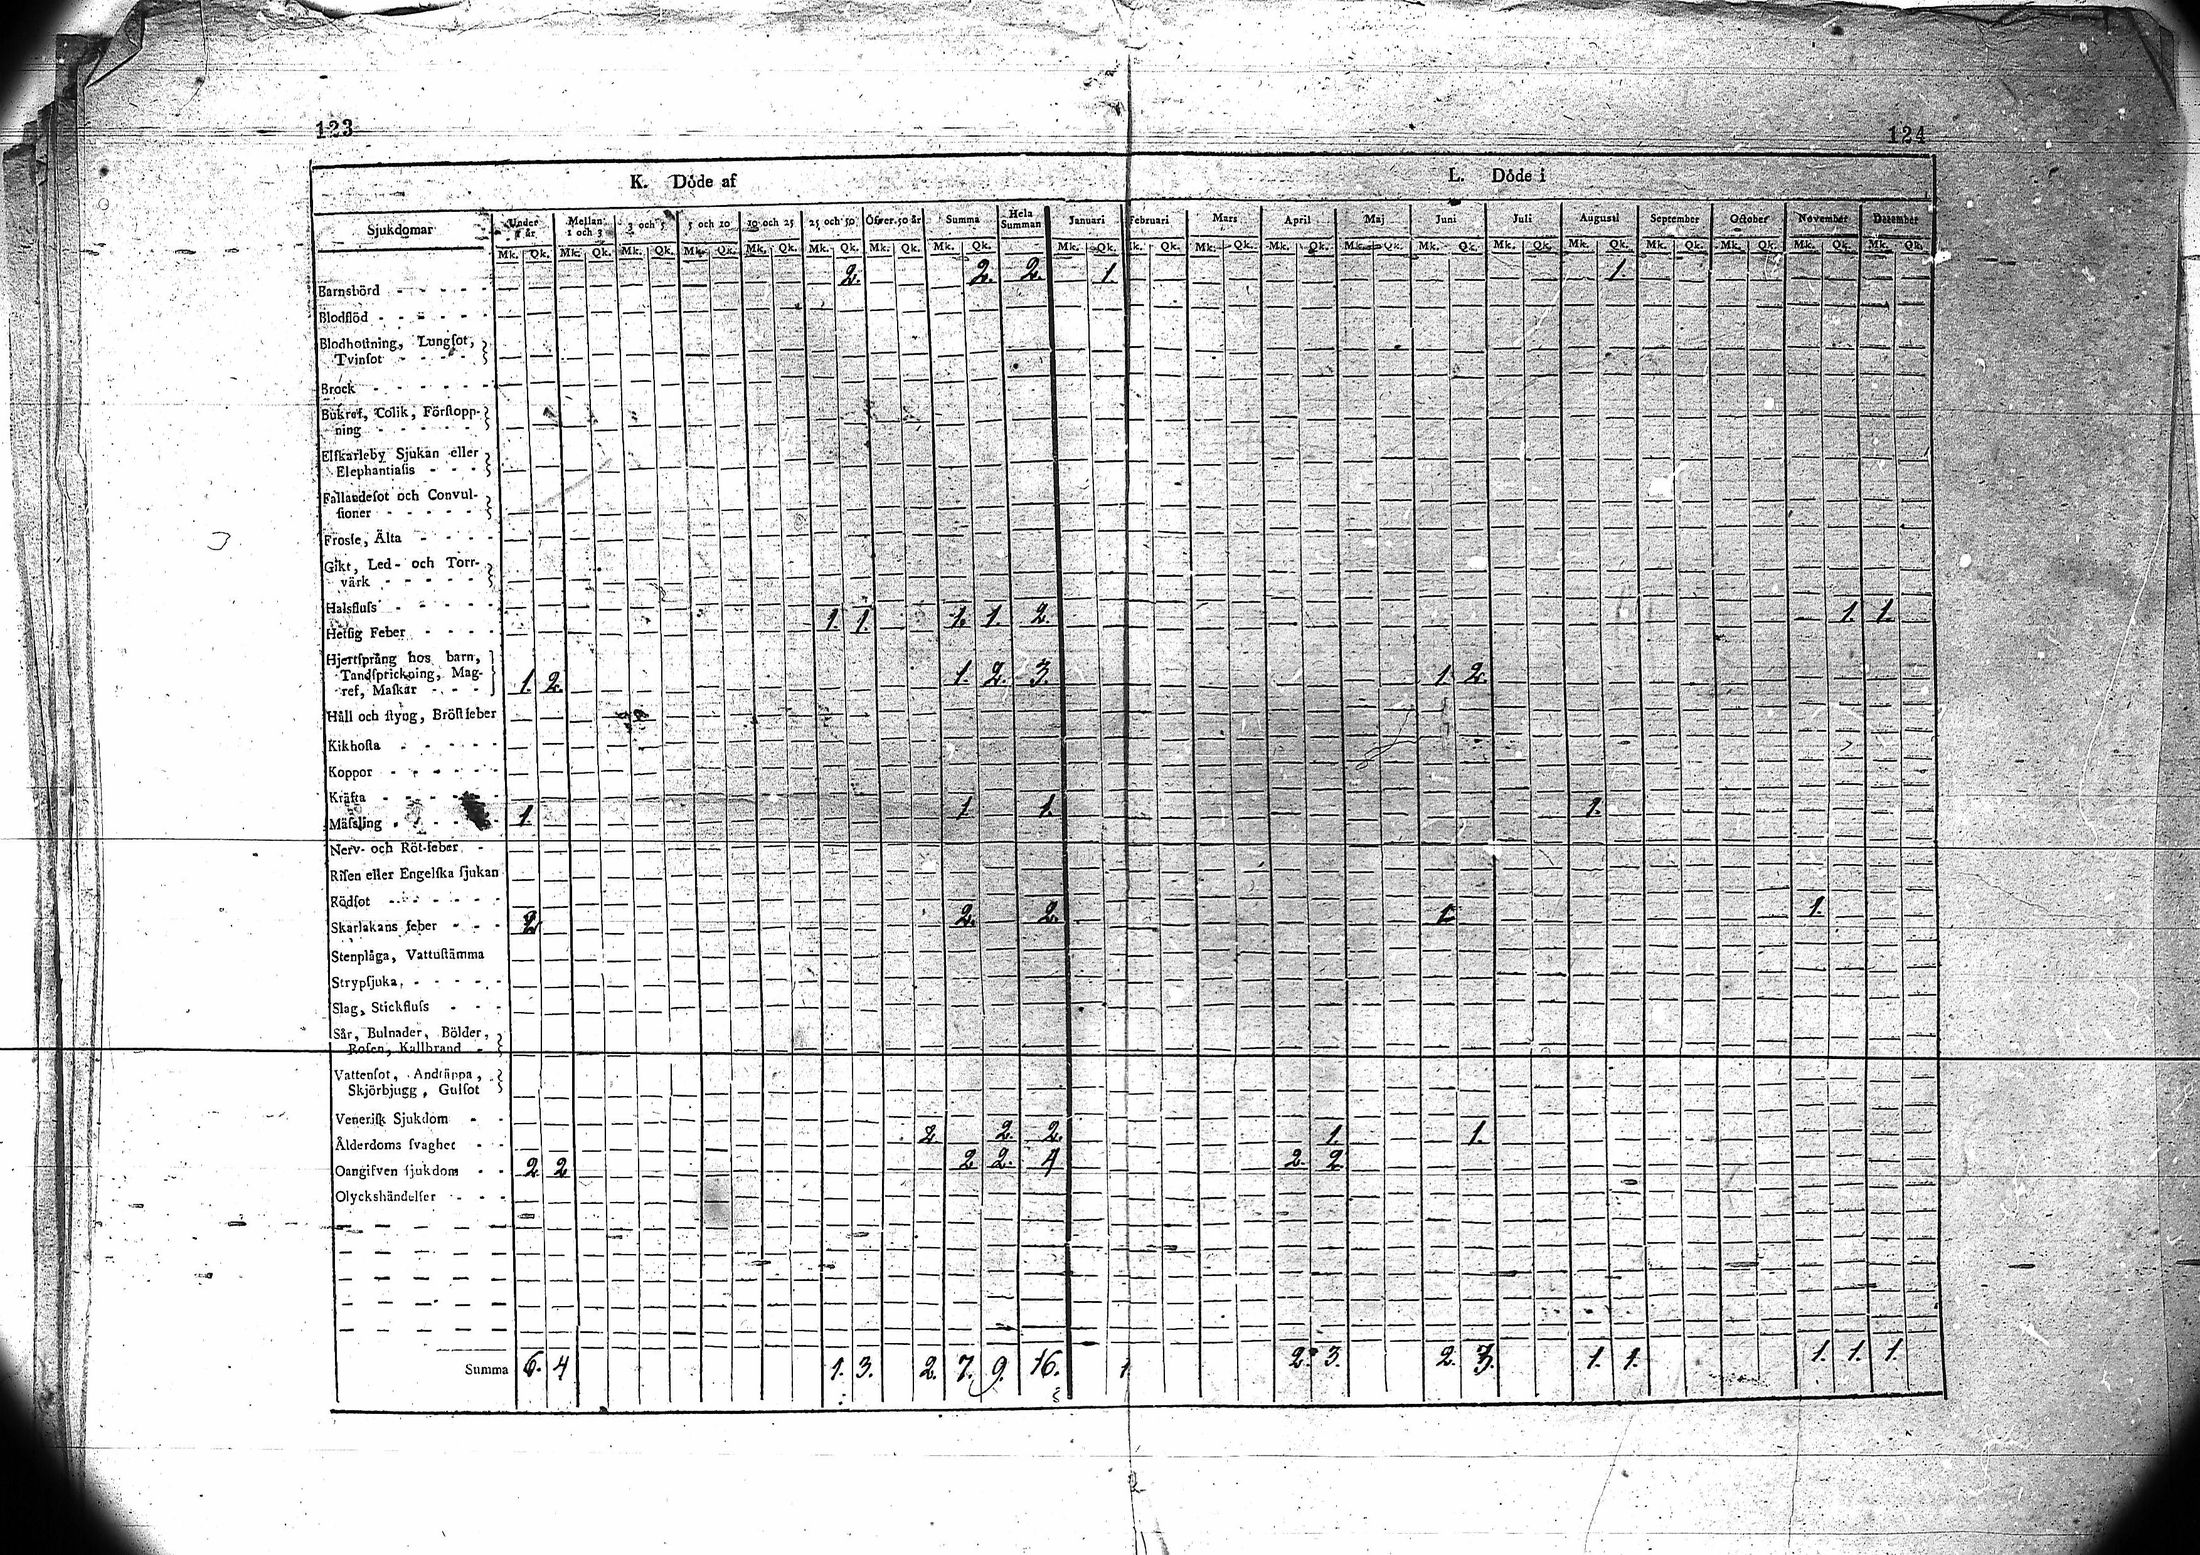 123
124
K. Döde af
L. Döde i
Sjukdomar Under 1 år Mellan 1 och 3 3 och 5 5 och 10 10 och 25 25 och 50 Öfver 50 år Summa Hela Summan Januari Februari Mars April Maj Juni Juli Augusti September October November December
Mk. Qk. Mk. Qk. Mk. Qk. Mk. Qk. Mk. Qk. Mk. Qk. Mk. Qk. Mk. Qk. Mk. Qk. Mk. Qk. Mk. Qk. Mk. Qk. Mk. Qk. Mk. Qk. Mk. Qk. Mk. Qk. Mk. Qk. Mk. Qk. Mk. Qk. Mk. Qk.
Barnsbörd 2. 2. 2. 1. 1.
Blodflöd
Blodhoſtning, Lungſot,
Tvinſot
Brock
Bukref, Colik, Förſtopp-
ning
Elfkarleby Sjukan eller
Elephantiaſis
Fallandeſot och Convul-
ſioner
Froſſe, Älta
Gikt, Led- och Torr-
värk
Halsfluſs
Hetſig Feber 1. 1. 1. 1. 2. 1. 1.
Hjertſprång hos barn,
Tandſprickning, Mag-
ref, Maſkar 1. 2. 1. 2. 3. 1 2.
Håll och ſtyng, Bröſtfeber
Kikhoſta
Koppor
Kräfta
Mäſsling 1. 1. 1. 1.
Nerv- och Röt-feber
Riſen eller Engelſka ſjukan
Rödſot
Skarlakans feber 2 2. 2. 1. 1.
Stenplåga, Vattuſtämma
Strypſjuka
Slag, Stickfluſs
Sår, Bulnader, Bölder,
Roſen, Kallbrand
Vattenſot, Andtäppa,
Skjörbjugg, Gulſot
Veneriſk Sjukdom
Ålderdoms ſvaghet 2. 2. 2. 1. 1.
Oangifven ſjukdom 2. 2 2 2. 4 2. 2
Olyckshändelſer
Summa 6. 4 1. 3. 2. 7. 9. 16. 1 2. 3. 2. 3. 1. 1. 1. 1. 1.